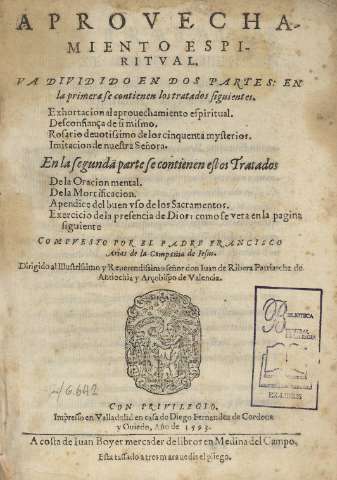 APROVECHA-
MIENTO ESPI-
RITVAL.
VA DIVIDIDO EN DOS PARTES: EN
la primera se contienen los tratados siguientes.
Exhortacion al aprouechamiento espiritual.
Desconfiança de si mismo.
Rosario deuotissimo de los cinquenta mysterios.
Imitacion de nuestra Señora.
En la segunda parte se contienen estos Tratados
De la Oracion mental.
De la Mortificacion.
Apendice del buen vso de los Sacramentos.
Exercicio de la presencia de Dios: como se vera en la pagina
siguiente
COMPVESTO POR EL PADRE FRANCISCO
Arias de la Compañia de Iesus.
Dirigido al Illustrissimo y Reuerendissimo señor don Iuan de Ribera Patriarcha de
Antiochia y Arçobispo de Valencia.
BIBLIOTECA
EX-LIBRIS
G.642
CON PRIVILEGIO.
Impresso en Valladolid en casa de Diego Fernandez de Cordoua
y Ouiedo, Año de 1593.
A costa de Iuan Boyer mercader de libros en Medina del Campo,
Esta tassado a tres marauedis el pliego.